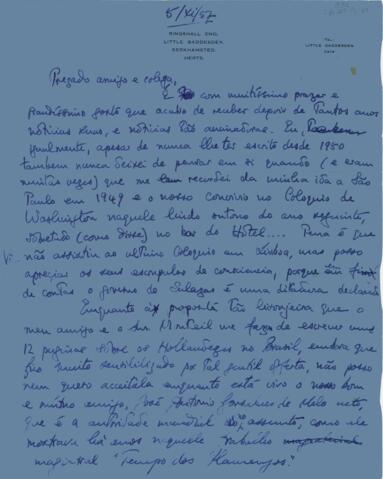 5/XI/57
RINGSHALL END,
LITTLE GADDESDEN,
BERKHAMSTED,
HERTS.
TEL:
LITTLE GADDESDEN
Prezado amigo e colega,
É com muitíssimo prazer e
grandíssimo gosto que acabo de receber depois de tantos anos
notícias suas, e notícias tão animadoras. Eu,
igualmente, apesar de nunca lhe ter escrito desde 1950
tambem nunca deixei de pensar em si quando (e eram
muitas vezes) que me recordei da minha ida a São
Paulo em 1949 e o nosso convivio no Coloquio de
Washington naquele lindo outono do ano seguinte,
sobretudo (como disse) no bar do Hotel.... Pena é que
não assistiu ao ultimo Coloquio em Lisboa, mas posso
apreciar os seus escrupulos de consciencia, porque em
de contas o governo de Salazar é uma ditadura declarada
Enquanto á proposta tão lisongeira que o
meu amigo e o Snr. Monteil me fazem de escrever umas
12 paginas sobre os Hollandezes no Brasil, embora que
fico muito sensibilizado por tal gentil oferta, não posso
nem quero aceitala enquanto está vivo o nosso bom
e mútuo amigo, José Antonio Gonsalves de Melo neto,
que é a autoridade mundial no assunto, como ele
mostrava há anos naquele trabalho
magistral "Tempo dos Flamengos."